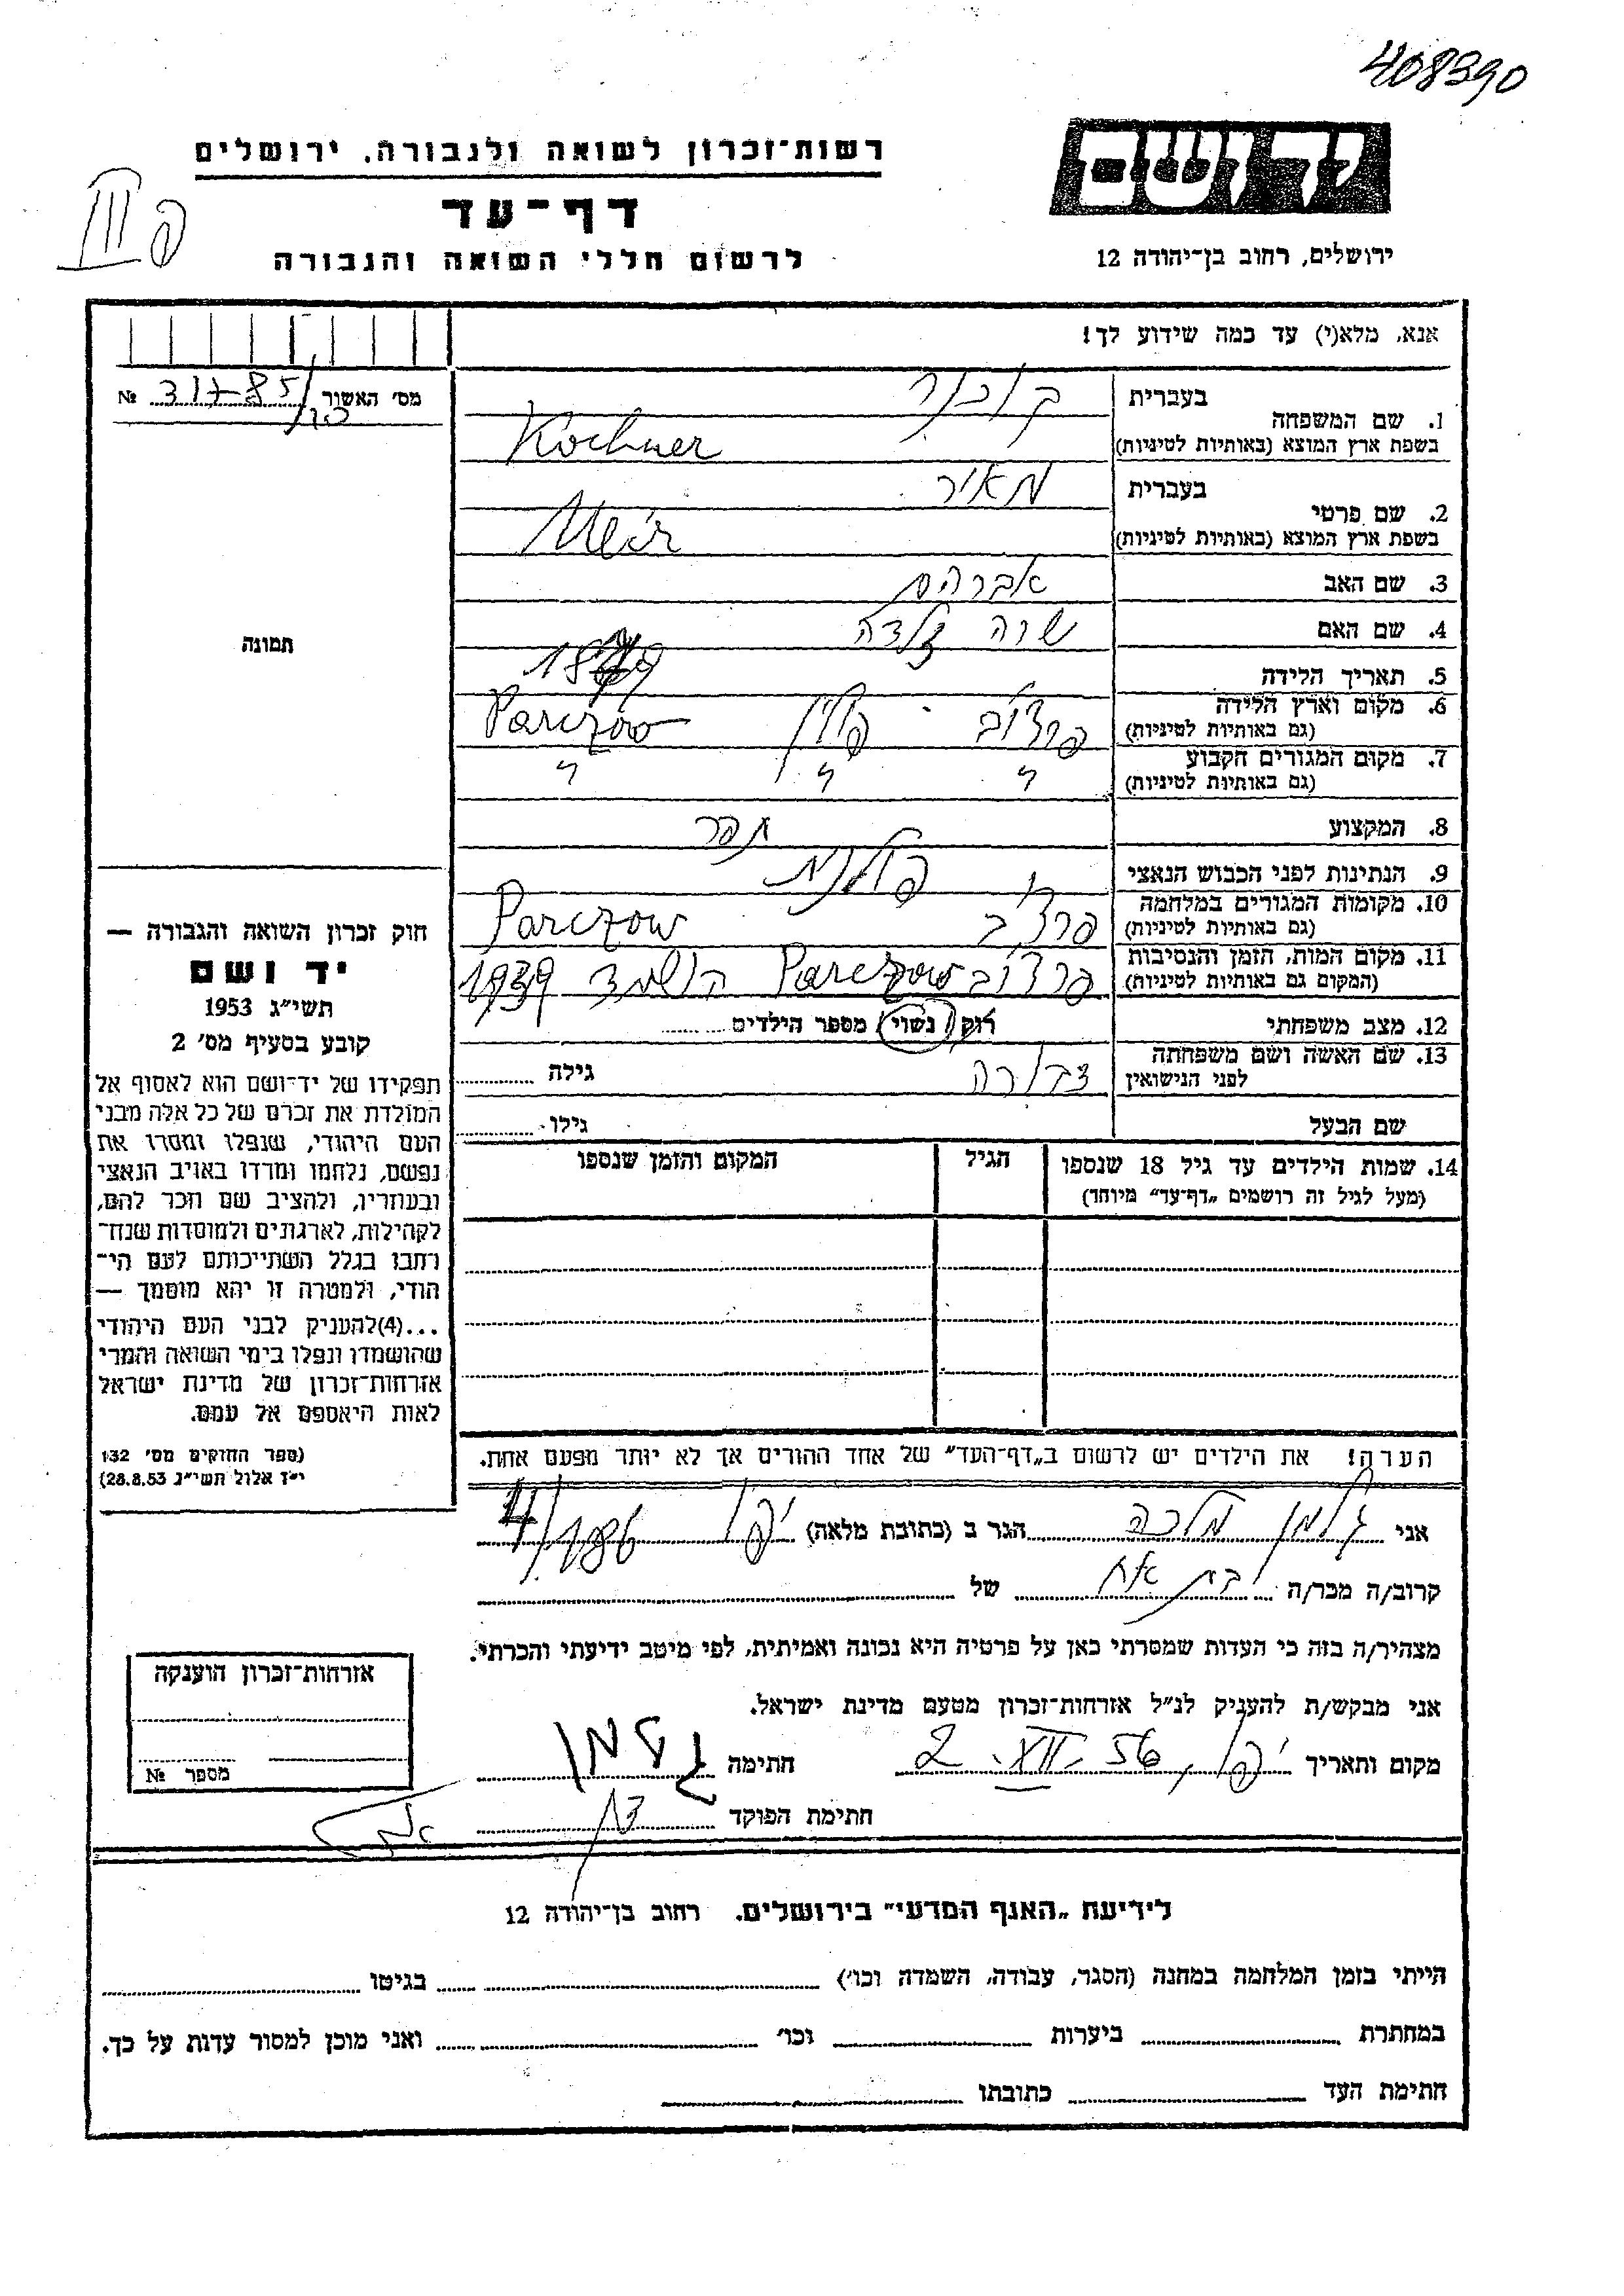 408390
רשות־זכרון לשואה ולגבורה. ירושלים
יד ושם
דף־עד
לרשום חללי השואה והגבורה
ירושלים, רחוב בן־יהודה 12
אנא, מלא(י) עד כמה שידוע לך!
מס׳ האשור 31785 №
1. שם המשפחה
בעברית
בשפת ארץ המוצא (באותיות לטיניות) Kochner
2. שם פרטי
בעברית מאיר
בשפת ארץ המוצא (באותיות לטיניות) Meir
3. שם האב אברהם
4. שם האם שרה
5. תאריך הלידה
6. מקום וארץ הלידה פרצ׳וב פולין Parczow
(גם באותיות לטיניות)
7. מקום המגורים הקבוע
(גם באותיות לטיניות)
8. המקצוע תפר
9. הנתינות לפני הכבוש הנאצי פולנית
10. מקומות המגורים במלחמה פרצ׳וב Parczow
(גם באותיות לטיניות)
11. מקום המות, הזמן והנסיבות פרצ׳וב Parczow הושמד 1939
(המקום גם באותיות לטיניות)
12. מצב משפחתי רוק / נשוי / מספר הילדים
13. שם האשה ושם משפחתה גילה
לפני הנישואין
שם הבעל גילו
14. שמות הילדים עד גיל 18 שנספו הגיל המקום והזמן שנספו
(מעל לגיל זה רושמים „דף־עד״ מיוחד)
תמונה
חוק זכרון השואה והגבורה —
יד ושם
תשי״ג 1953
קובע בסעיף מס׳ 2
תפקידו של יד־ושם הוא לאסוף אל
המולדת את זכרם של כל אלה מבני
העם היהודי, שנפלו ומסרו את
נפשם, נלחמו ומרדו באויב הנאצי
ובעוזריו, ולהציב שם וזכר להם,
לקהילות, לארגונים ולמוסדות שנח־
רבו בגלל השתייכותם לעם הי־
הודי, ולמטרה זו יהא מוסמך —
...(4)להעניק לבני העם היהודי
שהושמדו ונפלו בימי השואה והמרי
אזרחות־זכרון של מדינת ישראל
לאות היאספם אל עמם.
(ספר החוקים מס׳ 132
י״ז אלול תשי״ג 28.8.53)
הערה! את הילדים יש לרשום ב„דף־העד״ של אחד ההורים אך לא יותר מפעם אחת.
אני מלכה הגר ב (כתובת מלאה) יפו
קרוב/ה מכר/ה בת אח של
מצהיר/ה בזה כי העדות שמסרתי כאן על פרטיה היא נכונה ואמיתית, לפי מיטב ידיעתי והכרתי.
אני מבקש/ת להעניק לנ״ל אזרחות־זכרון מטעם מדינת ישראל.
מקום ותאריך יפו, 2. XII. 56 חתימה
חתימת הפוקד
אזרחות־זכרון הוענקה
מספר №
לידיעת „האגף המדעי״ בירושלים. רחוב בן־יהודה 12
הייתי בזמן המלחמה במחנה (הסגר, עבודה, השמדה וכו׳) בגיטו
במחתרת ביערות וכו׳ ואני מוכן למסור עדות על כך.
חתימת העד כתובתו